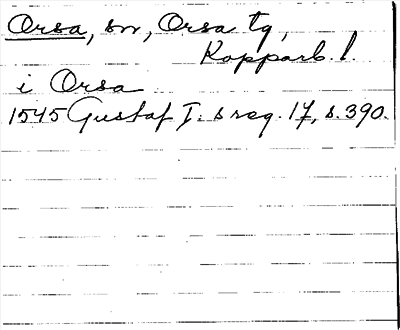 Orsa, sn, Orsa tg,
Kopparb. l.
i Orsa
1545 Gustaf I:s reg. 17, s. 390.